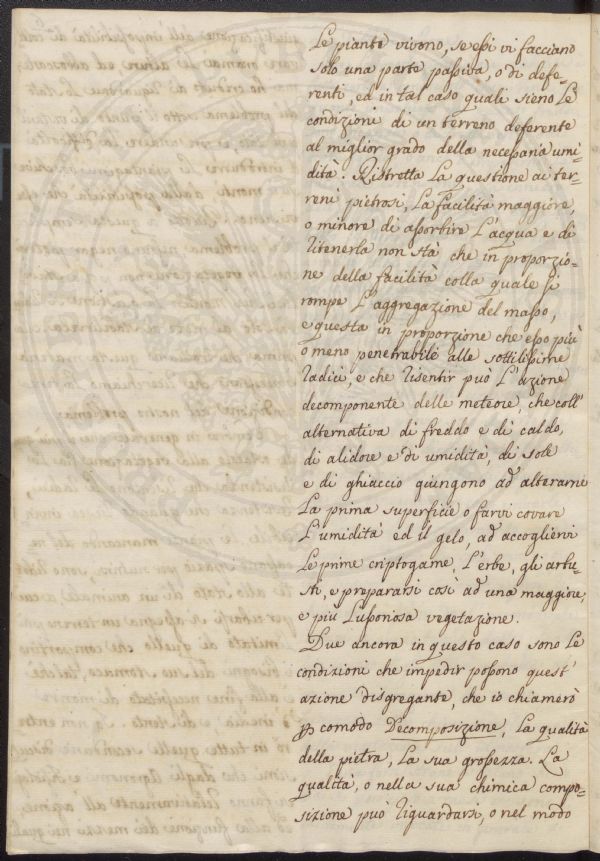 Le piante vivono, se essi vi facciano
solo una parte passiva, o di defe-
renti, ed in tal caso quali sieno le
condizione di un terreno deferente
al miglior grado della necessaria umi-
dità. Ristretta la questione ai ter-
reni pietrosi, la facilità maggiore,
o minore di assorbire l'acqua e di
ritenerla non stà che in proporzio-
ne della facilità colla quale si
rompe l'aggregazione del masso,
e questa in proporzione che esso più
o meno penetrabile alle sottilissime
radici, e che risentir può l'azione
decomponente delle meteore, che coll'
alternativa di freddo e di caldo,
di alidore e di umidità, di sole
e di ghiaccio giungono ad alterarne
la prima superficie o farvi covare
l'umidità ed il gelo, ad accoglievi
le prime criptogame, l'erbe, gli arbu-
sti, e prepararsi così ad una maggiore,
e più lussoriosa vegetazione.
Due ancora in questo caso sono le
condizioni che impedir possono quest'
azione disgregante, che io chiamerò
p comodo Decomposizione, la qualità
della pietra, la sua grossezza. La
qualità, o nella sua chimica compo-
sizione può riguardarsi, o nel modo